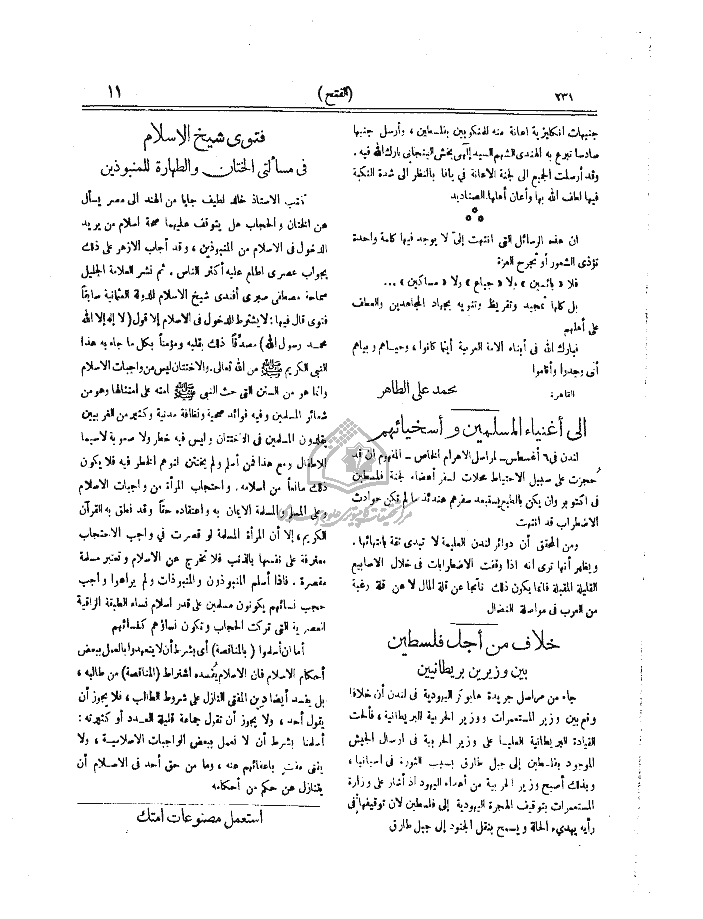 ٢٣١
(الفتح)
١١
جنيهات انكليزية اعانة منه للمنكوبين بفلسطين، وأرسل جنيها
سادسا تبرع به الهندى الشهم السيد إلهى بخش البنجابى بارك الله فيه.
وقد أرسلت الجميع الى لجنة الاعانة فى يافا بالنظر الى شدة النكبة
فيها لطف الله بها وأعان أهلها الصناديد
***
ان هذه الرسائل التى انتهت إلىّ لا يوجد فيها كلمة واحدة
تؤذى الشعور أو تجرح العزة
فلا « بائسين » ولا « جياع » ولا « مساكين » ...
بل كلها تمجيد وتقريظ وتنويه بجهاد المجاهدين والعطف
على أهلهم
فبارك الله فى أبناء الامة العربية أينما كانوا، وحياهم وبياهم
أنى وجدوا وأقاموا
القاهرة: محمد على الطاهر
الى أغنياء المسلمين وأسخيائهم
لندن فى ٦ أغسطس ـ لمراسل الاهرام الخاص ـ المفهوم ان قد
حجزت على سبيل الاحتياط محلات لسفر أعضاء لجنة فلسطين
فى اكتوبر وان يكن بالطبع يستبعد سفرهم عندئذ ما لم تكن حوادث
الاضطراب قد انتهت
ومن المحقق أن دوائر لندن العليمة لا تبدى ثقة بانتهائها.
ويظهر أنها ترى انه اذا وقفت الاضطرابات فى خلال الاسابيع
القليلة المقبلة فانما يكون ذلك ناتجا عن قلة المال لا عن قلة رغبة
من العرب فى مواصلة النضال
خلاف من أجل فلسطين
بين وزيرين بريطانيين
جاء من مراسل جريدة هابوكر اليهودية فى لندن أن خلافا
وقع بين وزير المستعمرات ووزير الحربية البريطانية، فألحت
القيادة البريطانية العليا على وزير الحربية فى ارسال الجيش
الموجود بفلسطين إلى جبل طارق بسبب الثورة فى اسبانيا،
وبذلك أصبح وزير الحربية من أعداء اليهود اذ أشار على وزارة
المستعمرات بتوقيف الهجرة اليهودية إلى فلسطين لان توقيفها فى
رأيه يهدىء الحالة ويسمح بنقل الجنود إلى جبل طارق
فتوى شيخ الاسلام
فى مسألتى الختان والطهارة للمنبوذين
كتب الاستاذ خالد لطيف جابا من الهند الى مصر يسأل
عن الختان والحجاب هل يتوقف عليهما صحة اسلام من يريد
الدخول فى الاسلام من المنبوذين، وقد أجاب الازهر على ذلك
بجواب عصرى اطلع عليه أكثر الناس. ثم نشر العلامة الجليل
سماحة مصطفى صبرى أفندى شيخ الاسلام للدولة العثمانية سابقاً
فتوى قال فيها: لا يشترط للدخول فى الاسلام إلا قول (لا إله إلا الله
محمد رسول الله) مصدقاً ذلك بقلبه ومؤمناً بكل ما جاء به هذا
النبى الكريم ﷺ من الله تعالى. والاختتان ليس من واجبات الاسلام
وانما هو من السنن التى حث النبى ﷺ امته على امتثالها وهو من
شعائر المسلمين وفيه فوائد صحية ونظافة مدنية وكثير من الغربيين
يقلدون المسلمين فى الاختتان وليس فيه خطر ولا صعوبة لا سيما
للاطفال ومع هذا فمن أسلم ولم يختتن لتوهم الخطر فيه فلا يكون
ذلك مانعاً من اسلامه. واحتجاب المرأة من واجبات الاسلام
وعلى المسلم والمسلمة الايمان به واعتقاده حقاً وقد نطق به القرآن
الكريم، إلا أن المرأة المسلمة لو قصرت فى واجب الاحتجاب
معترفة على نفسها بالذنب فلا تخرج عن الاسلام وتعتبر مسلمة
مقصرة. فاذا أسلم المنبوذون والمنبوذات ولم يراعوا واجب
حجب نسائهم يكونون مسلمين على قدر اسلام نساء الطبقة الراقية
العصرية التى تركت الحجاب وتكون نساؤهم كنسائهم
أما ان أسلموا (بالمناقصة) أى بشرط أن لا يتعهدوا بالعمل ببعض
أحكام الاسلام فان الاسلام يفسده اشتراط (المناقصة) من طالبه،
بل يفسد أيضا دين المفتى النازل على شروط الطالب، فلا يجوز أن
يقول أحد، ولا يجوز أن تقول جماعة قليلة العدد أو كثيرته:
أسلمنا بشرط أن لا نعمل ببعض الواجبات الاسلامية، ولا
يفتى مفت باعفائهم عنه، وما من حق أحد فى الاسلام أن
يتنازل عن حكم من أحكامه
استعمل مصنوعات امتك